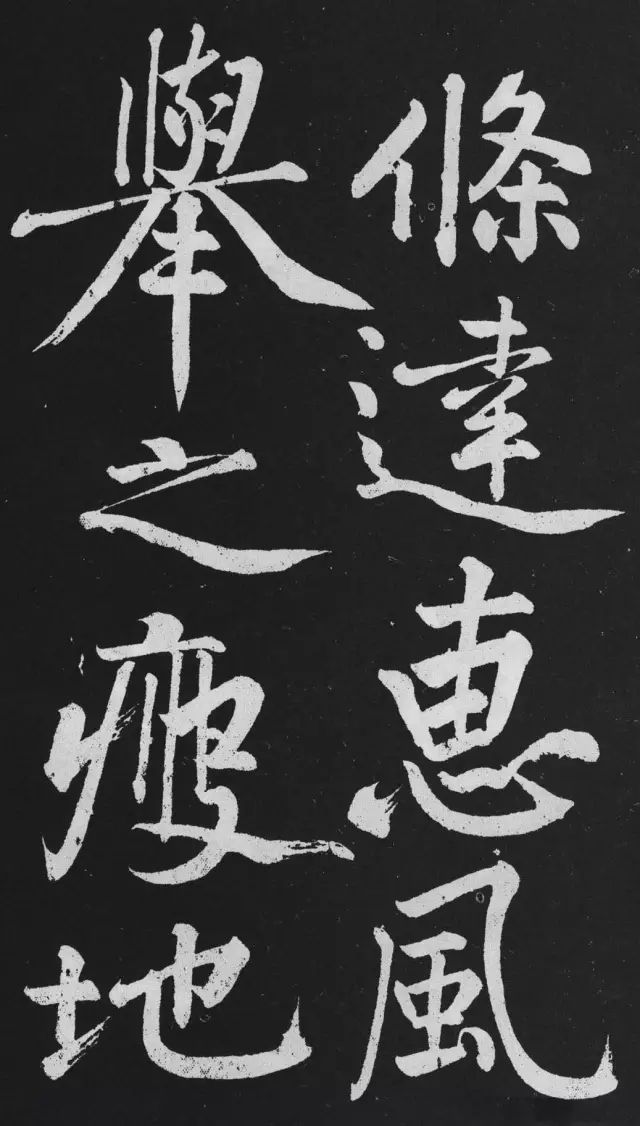 條達恵風
舉之瘦地